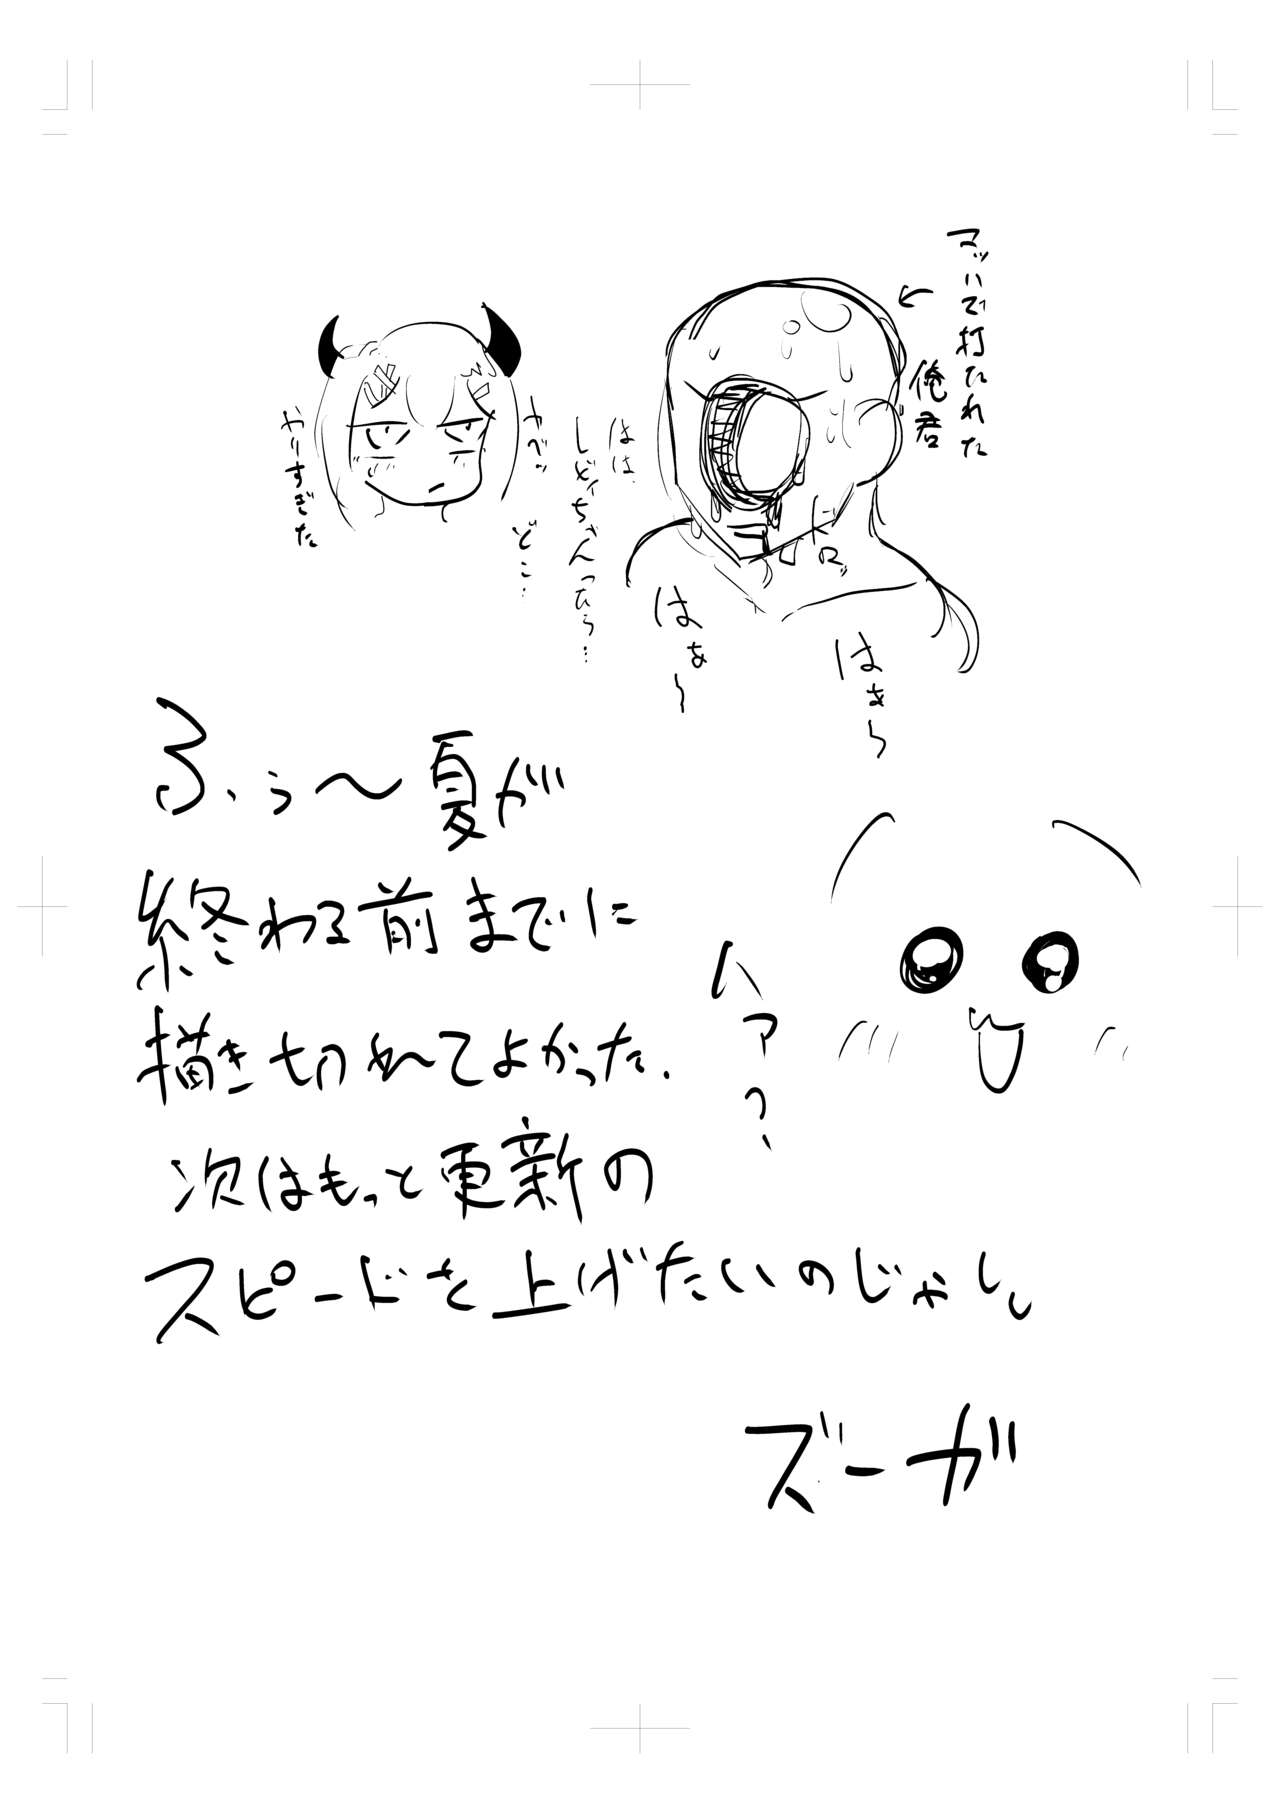 マッハで打たれた
俺君
はは
しどいちゃんっぴら…
ヤベッ
どこ…
やりすぎた
ドロッ
はぁ〜
はぁ〜
ふぅ〜夏が
終わる前までに
描き切れてよかった.
次はもっと更新の
スピードを上げたいのじゃし。
ハァっ、
ズーガ